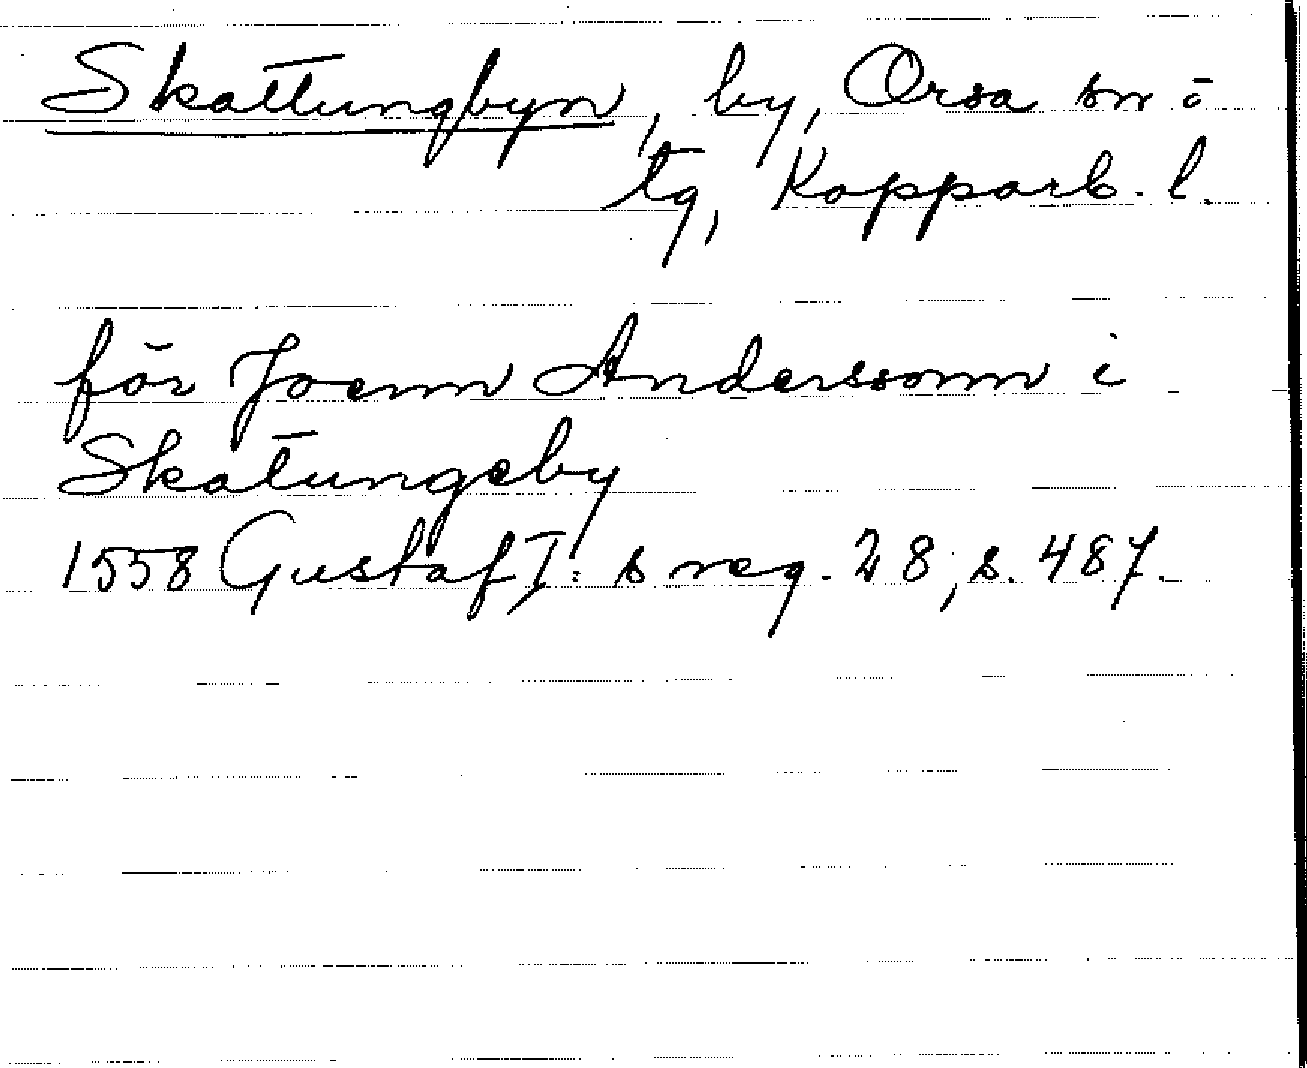 Skattungbyn, by, Orsa sn o
tg, Kopparb. l.
för Joenn Anderssonn i
Skatungeby
1558 Gustaf I: s reg. 28, s. 487.